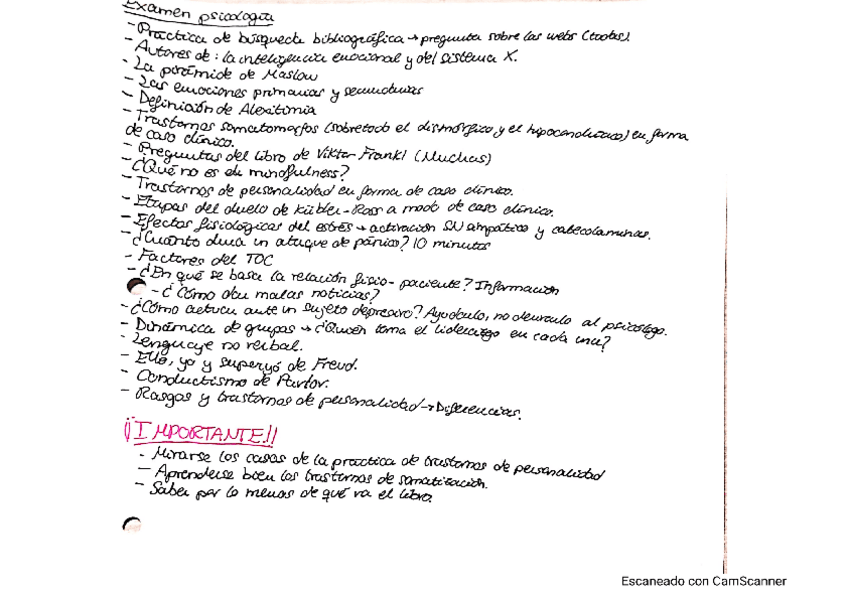 Examen psicología
- Práctica de búsqueda bibliográfica → pregunta sobre las webs (todas)
- Autores de: la inteligencia emocional y del sistema X.
- La pirámide de Maslow
- Las emociones primarias y secundarias
- Definición de Alexitimia
- Trastornos somatomorfos (sobretodo el dismórfico y el hipocondríaco) en forma
de caso clínico.
- Preguntas del libro de Viktor Frankl (Muchas)
- ¿Qué no es de mindfulness?
- Trastornos de personalidad en forma de caso clínico.
- Etapas del duelo de Kübler-Ross a modo de caso clínico.
- Efectos fisiológicos del estrés → activación SN simpático y catecolaminas.
- ¿Cuánto dura un ataque de pánico? 10 minutos
- Factores del TOC
- ¿En qué se basa la relación fisio-paciente? Información
- ¿Cómo dar malas noticias?
- ¿Cómo actuar ante un sujeto depresivo? Ayudarlo, no derivarlo al psicólogo.
- Dinámica de grupos → ¿Quién toma el liderazgo en cada una?
- Lenguaje no verbal.
- Ello, yo y superyó de Freud.
- Conductismo de Pavlov.
- Rasgos y trastornos de personalidad → Diferencias.
¡¡IMPORTANTE!!
- Mirarse los casos de la práctica de trastornos de personalidad
- Aprenderse bien los trastornos de somatización.
- Saber por lo menos de qué va el libro.
Escaneado con CamScanner